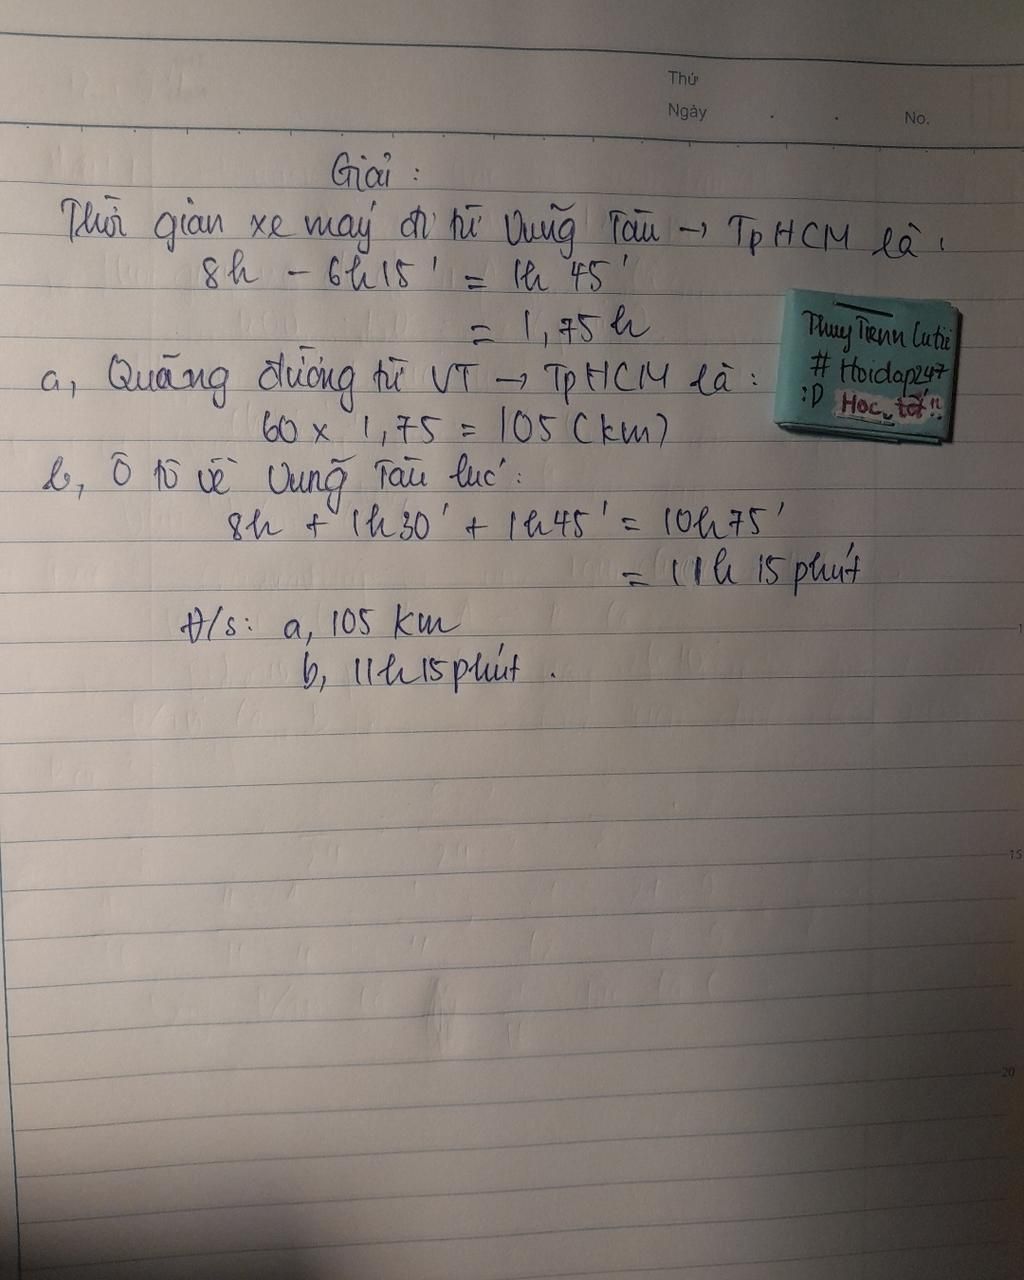 Thứ
Ngày . . No.
Giải :
Thời gian xe máy đi từ Vũng Tàu → TpHCM là :
8h - 6h15' = 1h 45'
= 1,75h
a, Quãng đường từ VT → TpHCM là :
60 x 1,75 = 105 (km)
b, Ô tô về Vũng Tàu lúc :
8h + 1h30' + 1h45' = 10h75'
= 11h 15 phút
Đ/s: a, 105 km
b, 11h15 phút .
Thuy Tienn Cutii
# Hoidap247
:D Học tốt !!
15
20